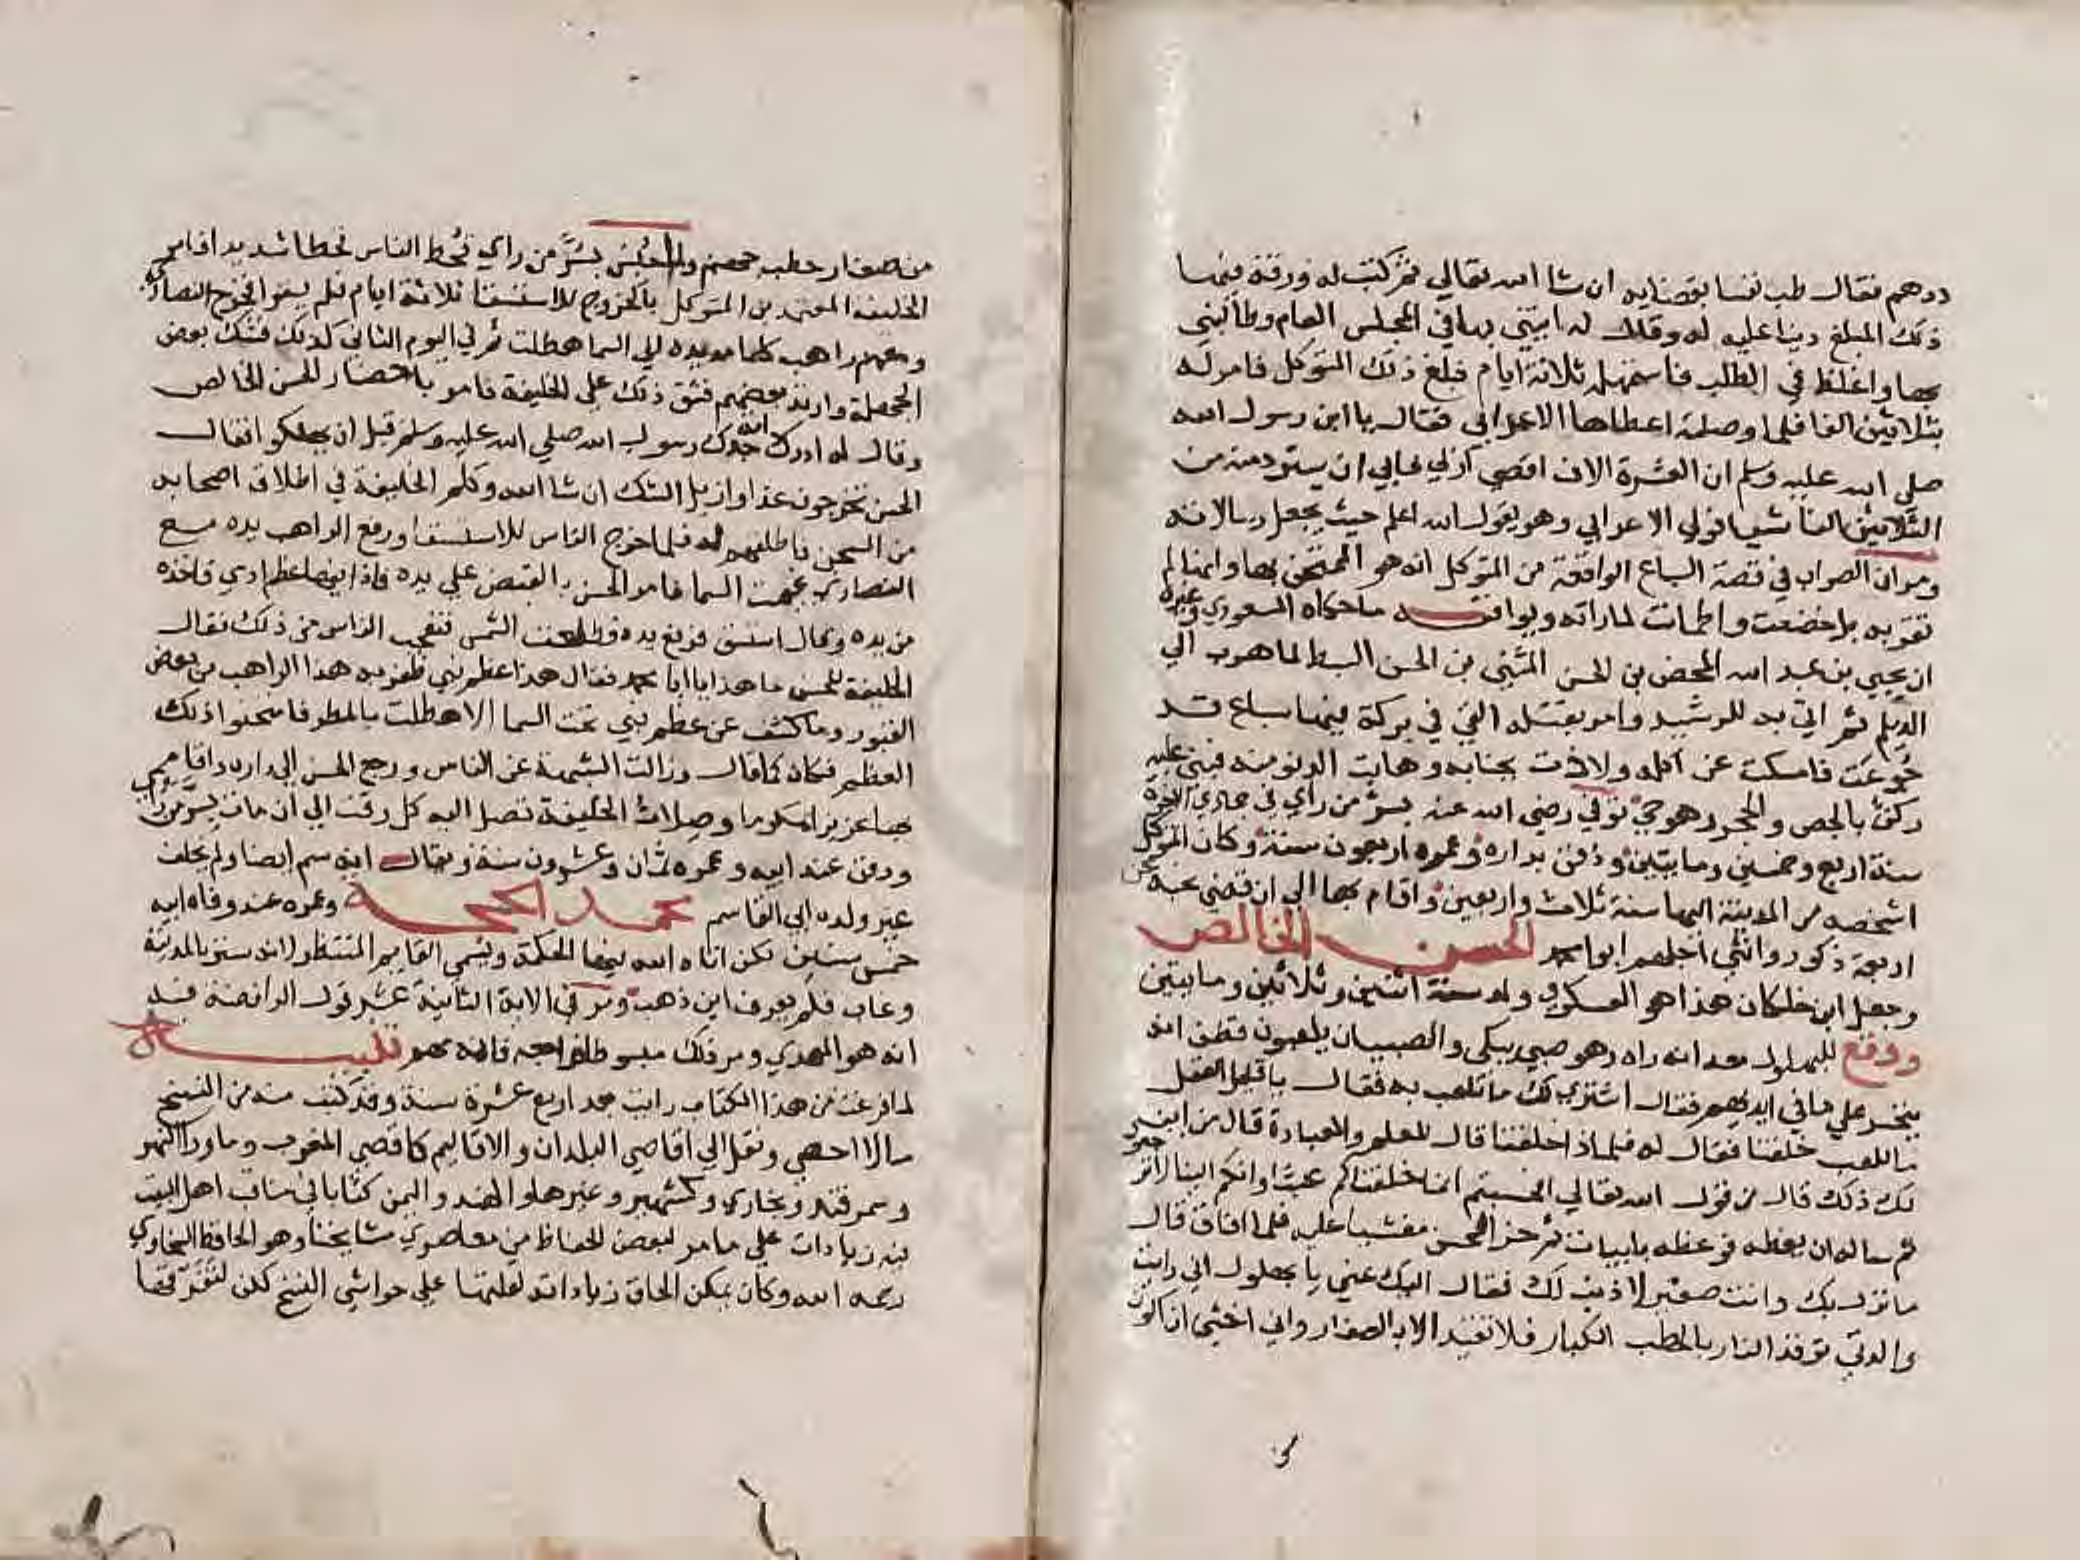 درهم فقال طب نفسا بقضايه ان شا الله تعالي ثم كتب له ورقة فيها
ذلك المبلغ دينا عليه له وقال له ايتني بها في المجلس العام وطالبني
بها واغلظ في الطلب فاستمهله ثلاثة ايام فبلغ ذلك المتوكل فامر له
بثلاثين الفا فلما وصلته اعطاها الاعرابي فقال يا ابن رسول الله
صلي الله عليه وسلم ان العشرة الاف اقضي اربي فابي ان يسترد منه من
الثلاثين الفا شيا فولي الاعرابي وهو يقول الله اعلم حيث يجعل رسالاته
ومر ان الصواب في قصة السباع الواقعة من المتوكل انه هو الممتحن بها وانها لم
تقربه بل خضعت واطمانت لما راته ويوافقه ما حكاه المسعودي وغيره
ان يحيي بن عبد الله المحض بن الحسن المثنى بن الحسن السبط لما هرب الي
الديلم ثم اتي به للرشيد وامر بقتله القي في بركة فيها سباع قد
جوعت فامسكت عن اكله ولاذت بجنابه وهابت الدنو منه فبني عليه
ركن بالجص والحجر وهو حي توفي رضي الله عنه بسر من راي في جمادي الاخرة
سنة اربع وخمسين ومايتين ودفن بداره وعمره اربعون سنة وكان المتوكل
اشخصه من المدينة اليها سنة ثلاث واربعين واقام بها الي ان قضي نحبه عن
اربعة ذكور وانثي اجلهم ابو محمد الحسن الخالص
وجعل ابن خلكان هذا هو العسكري ولد سنة اثنين وثلاثين ومايتين
ووقع للبهلول معه انه راه وهو صبي يبكي والصبيان يلعبون فظن انه
يتحسر علي ما في ايديهم فقال اشتري لك ما تلعب به فقال يا قليل العقل
ما للعب خلقنا فقال له فلماذا خلقنا قال للعلم والعبادة قال من اين
لك ذلك قال من قول الله تعالي افحسبتم انما خلقناكم عبثا وانكم الينا لا ترجعون
ثم ساله ان يعظه فوعظه بابيات ثم خر الحسن مغشيا عليه فلما افاق قال
ما نزل بك وانت صغير لا ذنب لك فقال اليك عني يا بهلول اني رايت
والدتي توقد النار بالحطب الكبار فلا تتقد الا بالصغار واني اخشي ان اكون
من صغار حطب جهنم ولما حبس بسر من راي قحط الناس قحطا شديدا فامر
الخليفة المعتمد بن المتوكل بالخروج للاستسقا ثلاثة ايام فلم يسقوا فخرج النصاري
ومعهم راهب كلما مد يده الي السما هطلت ثم في اليوم الثاني كذلك فشك بعض
الجهلة وارتد بعضهم فشق ذلك علي الخليفة فامر باحضار الحسن الخالص
وقال له ادرك امة جدك رسول الله صلي الله عليه وسلم قبل ان يهلكوا فقال
الحسن تخرجون غدا وازيل الشك ان شا الله وكلم الخليفة في اطلاق اصحابه
من السجن فاطلقهم له فلما خرج الناس للاستسقا ورفع الراهب يده مع
النصاري غيمت السما فامر الحسن بالقبض علي يده فاذا فيها عظم ادمي فاخذه
من يده وقال استسق فرفع يده وطلعت الشمس فتعجب الناس من ذلك فقال
الخليفة للحسن ما هذا يا ابا محمد فقال هذا عظم نبي ظفر به هذا الراهب من بعض
القبور وما كشف عن عظم نبي تحت السما الا هطلت بالمطر فامتحنوا ذلك
العظم فكان كما قال وزالت الشبهة عن الناس ورجع الحسن الي داره واقام
بها عزيزا مكرما وصلات الخليفة تصل اليه كل وقت الي ان مات بسر من راي
ودفن عند ابيه وعمره ثمان وعشرون سنة ويقال انه سم ايضا ولم يخلف
غير ولده ابي القاسم محمد الحجة وعمره عند وفاة ابيه
خمس سنين لكن اتاه الله فيها الحكمة ويسمي القايم المنتظر لانه ستر بالمدينة
وغاب فلم يعرف اين ذهب ومر في الاية الثانية عشر قول الرافضة فيه
انه هو المهدي ومر ذلك مبسوطا فراجعه فانه مهم تنبيه
لما فرغت من هذا الكتاب رايت بعد اربع عشرة سنة وقد كتب منه من النسخ
ما لا احصي ونقل الي اقاصي البلدان والاقاليم كاقصي المغرب وما ورا النهر
وسمرقند وبخاري وكشمير وغيرها والهند واليمن كتابا في مناقب اهل البيت
فيه زيادات علي ما مر لبعض الحفاظ من معاصري مشايخنا وهو الحافظ السخاوي
رحمه الله وكان يمكن الحاق زياداته لقلتها علي حواشي النسخ لكن لتفرقها